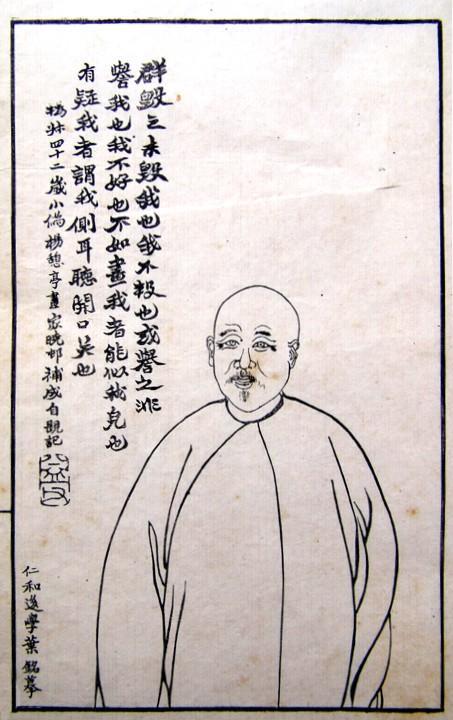 群毀之未毀我也我不報也或譽之非
譽我也我不好也不如畫我者能似我皃也
有疑我者謂我側耳聽開口笑也
撝叔四十二歲小像楊憩亭畫家曉邨補成自題記
益父
仁和後學葉銘摹